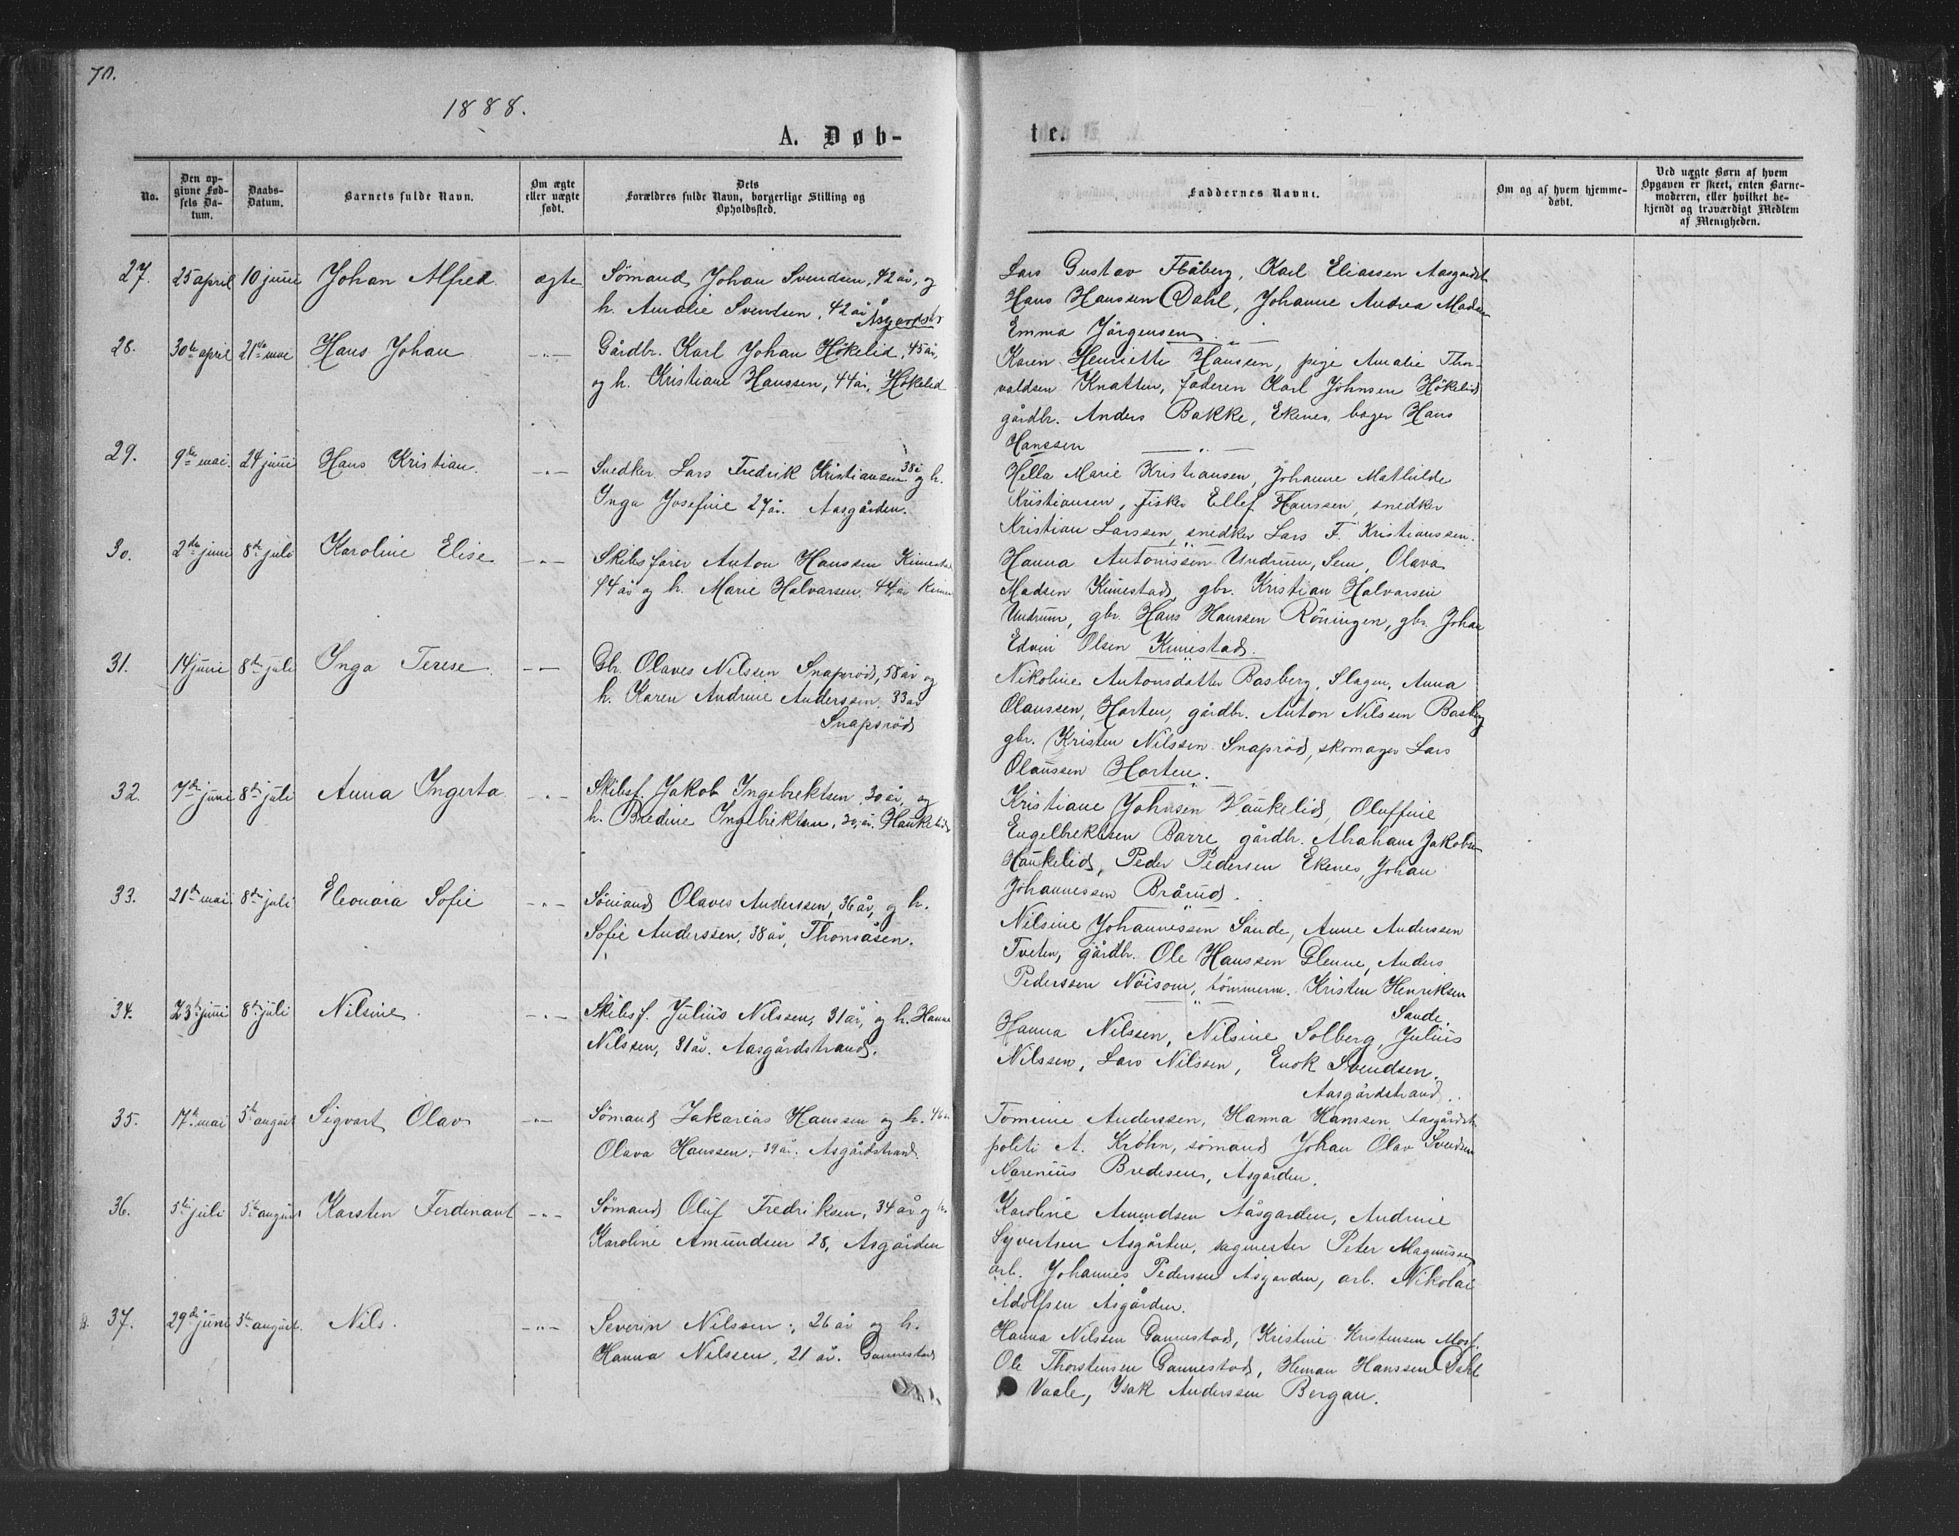 70.
1888.
A. Døb-
No.
Den op-
givne Fød-
sels Da-
tum.
Daabs-
Datum.
Barnets fulde Navn.
Om ægte
eller uægte
født.
Dets
Forældres fulde Navn, borgerlige Stilling og
Opholdssted.
27. 25 april 10 juni Johan Alfred ægte Sømand Johan Svendsen, 42 år, og
h. Amalie Svendsen, 42 år
28. 30te april 21de mai Hans Johan -„- Gårdbr. Karl Johan Høkelid, 45 år,
og h. Kristiane Hanssen, 44 år, Høkelid
29. 9de mai. 24 juni Hans Kristian. -„- Snedker Lars Fredrik Kristiansen 38 å og h.
Inga Josefine 27 år. Aasgården.
30. 2de juni 8de juli Karoline Elise -„- Skibsfører Anton Hanssen
44 år og h. Marie Halvarsen 44 år
31. 14 juni 8de juli Inga Terese -„- Gbr. Olaves Nilsen Snapsrød, 58 år og
h. Karen Andrine Anderssen 33 år
Snapsrød
32. 7de juni 8de juli Anna Ingerta -„- Skibsf. Jakob Ingebrektsen, 30 år, og
h. Bredine Ingebrektsen, 30 år. Haukelid
33. 21de mai 8de juli Eleonora Sofie -„- Sømand Olaves Anderssen, 36 år, og h.
Sofie Anderssen, 38 år, Thonsåsen.
34. 23de juni 8de juli Nilsine. -„- Skibsf. Julius Nilssen, 31 år, og h. Hanna
Nilssen, 31 år. Aasgårdstrand.
35. 17de mai 5te august Sigvart Olav -„- Sømand Zakarias Hanssen og h. 46 å
Olava Hanssen, 39 år. Asgårdstrand.
36. 5te juli 5te august Karsten Ferdinant -„- Sømand Oluf Fredriksen, 34 år og h.
Karoline Amundsen 28, Asgården
37. 29de juni 5te august. Nils. -„- Severin Nilssen, 26 år og h.
Hanna Nilssen, 21 år. Gannestad
te.
Faddernes Navne.
Om og af hvem hjemme-
døbt.
Ved uægte Børn af hvem
Opgaven er skeet, enten Barne-
moderen, eller hvilket be-
kjendt og troværdigt Medlem
af Menigheden.
Lars Gustav Floberg, Karl Eliassen Aasgårdst
Hans Hanssen Dahl, Johanne Andrea Madsen
Emma Jørgensen
Karen Henriette Hanssen, pige Amalie Thor-
valdsen Knatten, faderen Karl Johnsen Høkelid
gårdbr. Anders Bakke, Ekenes, bager Hans
Hanssen
Hella Marie Kristiansen, Johanne Mathilde
Kristiansen, fisker Ellef Hanssen, snedker
Kristian Larssen, snedker Lars F. Kristianssen.
Hanna Antonissen Undrum, Sem, Olava
Madsen Kinnestad, gbr. Kristian Halvarsen
Undrum, gbr. Hans Hanssen Röningen, gbr. Johan
Edvin Olsen Kinnestad.
Nikoline Antonsdatter Basberg, Slagen, Anna
Olaussen, Horten, gårdbr. Anton Nilssen Basberg
gbr. Kristen Nilssen Snaprød, skomager Lars
Olaussen Horten.
Kristiane Johnsen Haukelid, Oluffine
Engelbrektsen Barre, gårdbr. Abraham Jakobsen
Haukelid, Peder Pedersen Ekenes, Johan
Johannessen Brårud.
Nilsine Johannessen Sande, Anne Anderssen
Tveten, gårdbr. Ole Hanssen Glenne, Anders
Pederssen Nöisom, tömmerm. Kristen Henriksen
Sande.
Hanna Nilssen, Nilsine Solberg, Julius
Nilssen, Lars Nilssen, Enok Svendsen.
Aasgårdstrand.
Tomine Anderssen, Hanna Hanssen Aasgårdst.
politi A. Krøhn, sømand Johan Olav Svendsen
Narenius Bredesen, Asgården.
Karoline Amundsen Aasgarden, Andrine
Syvertsen Asgården, sagmester Peter Magnussen
arb. Johannes Pedersen Asgarden, arb. Nikolai
Adolfsen Asgården.
Hanna Nilssen Gannestad, Kristine Kristensen
Ole Thorstensen Gannestad, Herman Hanssen Dahl
Vaale, Isak Anderssen Bergan.